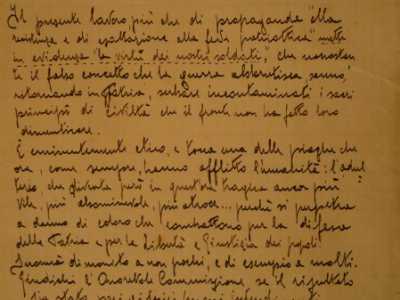 Il presente lavoro, più che di propaganda "alla
resistenza e di esaltazione alla fede patriottica" mette
in evidenza "le virtù dei nostri soldati," che nonostan-
te il falso concetto che la guerra abbrutisca, sanno,
ritornando in Patria, serbare incontaminati i sacri
principi di civiltà che il fronte non ha fatto loro
dimenticare.
È eminentemente etico, e tocca una delle piaghe che
ora, come sempre, hanno afflitto l'umanità: l'adul-
terio, che diventa però in quest'ora tragica ancor più
vile, più abominevole, più atroce... perchè si perpetra
a danno di coloro che combattono per la difesa
della Patria e per la Libertà e Giustizia dei popoli.
di monito a non pochi, e di esempio a molti.
Giudichi l'Onorevole Commissione, se il risultato
sia stato